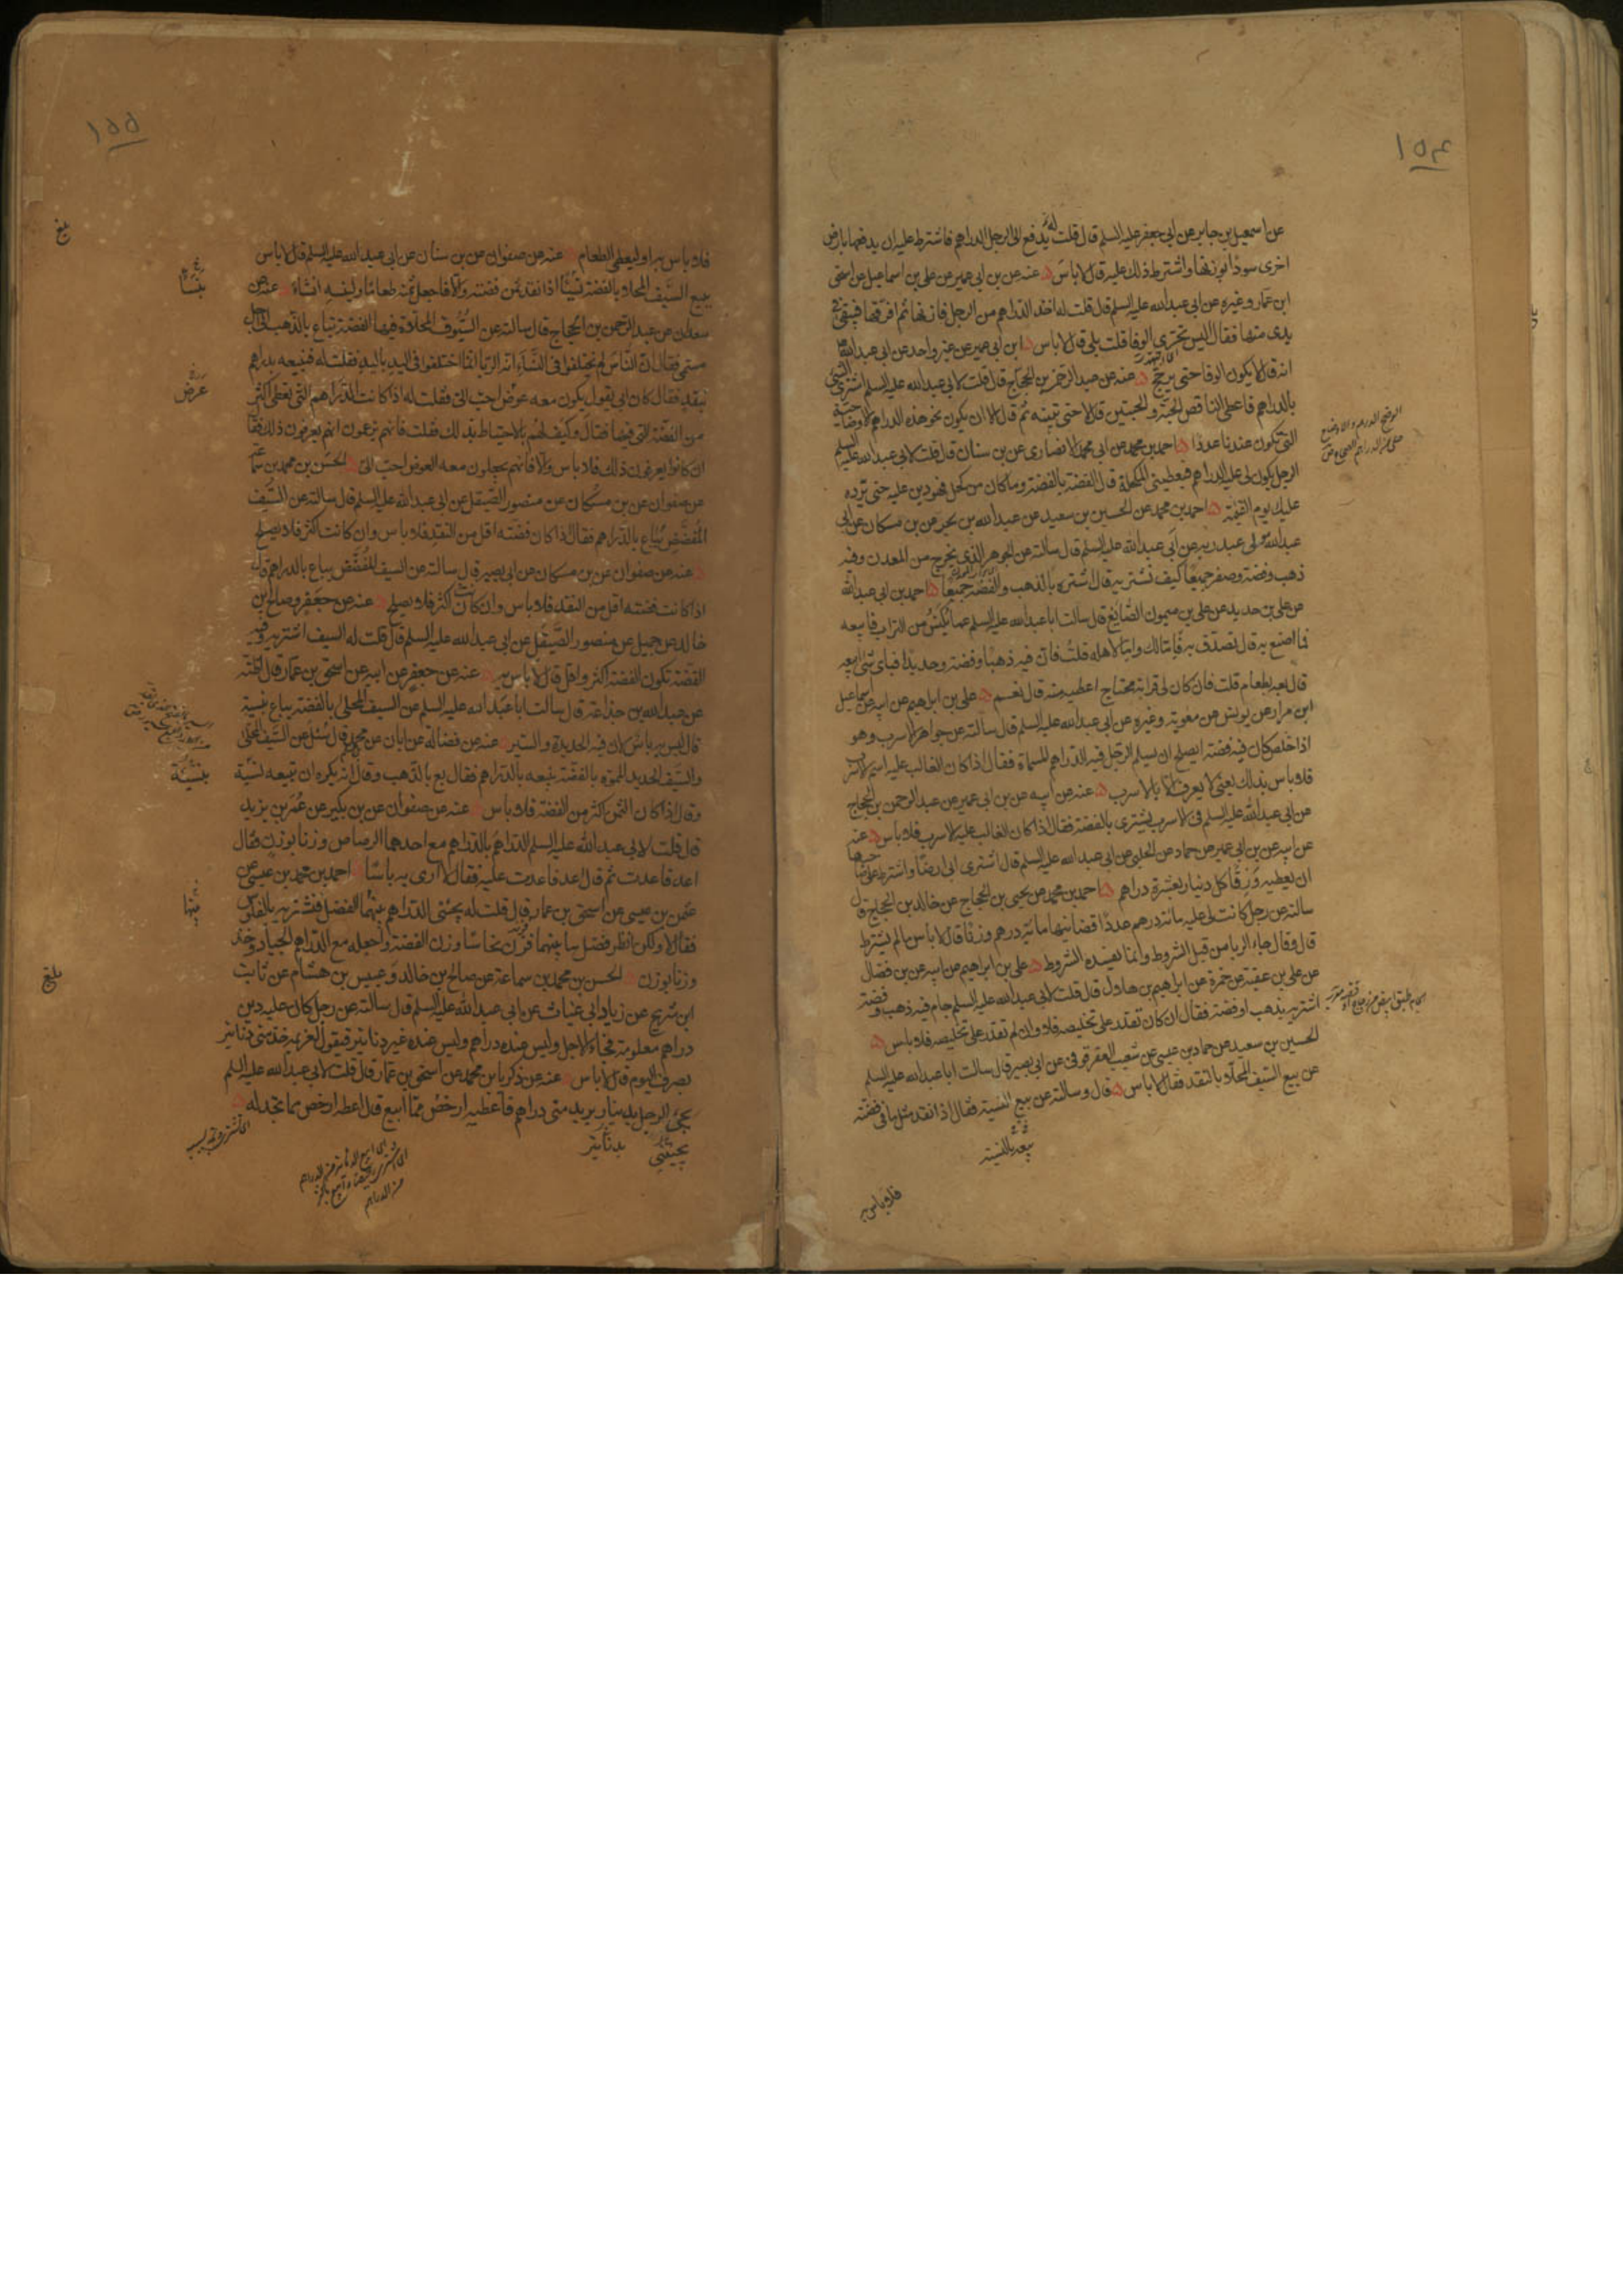 ١٥٤
عن اسمعيل بن جابر عن ابي جعفر عليه السلم قال قلت له يدفع الى الرجل الدراهم فاشترط عليه ان يدفعها بارض
اخرى سودا بوزنها واشترط ذلك عليه قال لا باس عنه عن بن ابي عمير عن علي بن اسماعيل عن اسحق
ابن عمار وغيره عن ابي عبد الله عليه السلم قال قلت له اخذ الدراهم من الرجل فازنها ثم افرقها فيبقى في
يدى منها فقال اليس تحترى الوفا قلت بلى قال لا باس ابن ابي عمير عن غير واحد عن ابي عبد الله
انه قال لا يكون الوفا حتى يرجح عنه عن عبد الرحمن بن الحجاج قال قلت لابي عبد الله عليه السلم اشترى الشئ
بالدراهم فاعطى الناقص الحبة والحبتين قال لا حتى تبينه ثم قال الا ان يكون نحو هذه الدراهم الاوضاحية
التي تكون عندنا عددا احمد بن محمد عن ابي محمد الانصارى عن بن سنان قال قلت لابي عبد الله عليه السلم
الرجل يكون لي عليه الدراهم فيعطيني المكحلة قال الفضة بالفضة وما كان من كحل فهو دين عليه حتى يرده
عليك يوم القيمة احمد بن محمد عن الحسين بن سعيد عن عبد الله بن بحر عن بن مسكان عن ابي
عبد الله مولى عبد ربه عن ابي عبد الله عليه السلم قال سالته عن الجوهر الذى يخرج من المعدن وفيه
ذهب وفضة وصفر جميعا كيف نشتريه قال اشتره بالذهب والفضة جميعا احمد بن ابي عبد الله
عن علي بن حديد عن علي بن ميمون الصايغ قال سالت ابا عبد الله عليه السلم عما يكنس من التراب فابيعه
فما اصنع به قال تصدق به فاما لك واما لاهله قلت فان فيه ذهبا وفضة وحديدا فباى شئ ابيعه
قال بعه بطعام قلت فان كان لي قرابة محتاج اعطيه منه قال نعم علي بن ابراهيم عن ابيه عن اسماعيل
ابن مرار عن يونس عن معوية وغيره عن ابي عبد الله عليه السلم قال سالته عن جواهر الاسرب وهو
اذا خلص كان فيه فضة ايصلح ان يسلم الرجل فيه الدراهم المسماة فقال اذا كان الغالب عليه اسم الاسرب
فلا باس بذلك يعني لا يعرف الا بالاسرب عنه عن ابيه عن بن ابي عمير عن عبد الرحمن بن الحجاج
عن ابي عبد الله عليه السلم في الاسرب يشترى بالفضة فقال اذا كان الغالب عليه الاسرب فلا باس عنه
عن ابيه عن بن ابي عمير عن حماد عن الحلبي عن ابي عبد الله عليه السلم قال اشترى ابي ارضا واشترط على صاحبها
ان يعطيه ورقا كل دينار بعشرة دراهم احمد بن محمد عن يحيى بن الحجاج عن خالد بن الحجاج قال
سالته عن رجل كانت لي عليه مائة درهم عددا قضانيها مائة درهم وزنا قال لا باس ما لم يشترط
قال وقال جاء الربا من قبل الشروط وانما يفسده الشروط علي بن ابراهيم عن ابيه عن بن فضال
عن علي بن عقبة عن حمزة عن ابراهيم بن هلال قال قلت لابي عبد الله عليه السلم جام فيه ذهب وفضة
اشتريه بذهب او فضة فقال ان كان تقدر على تخليصه فلا وان لم تقدر على تخليصه فلا باس
الحسين بن سعيد عن حماد بن عيسى عن شعيب العقرقوفي عن ابي بصير قال سالت ابا عبد الله عليه السلم
عن بيع السيف المحلا بالنقد فقال لا باس قال وسالته عن بيع النسية فقال اذا نقد مثل ما في فضته
بيعه بالنسية
فلا باس به
١٥٥
فلا باس به او ليعطى الطعام عنه عن صفوان عن بن سنان عن ابي عبد الله عليه السلم قال لا باس
ببيع السيف المحلا بالفضة نسيئا اذا نقد ثمن فضته والا فاجعل ثمنه طعاما ولينسه ان شاء عنه عن
سعدان عن عبد الرحمن بن الحجاج قال سالته عن السيوف المحلاة فيها الفضة تباع بالذهب الى اجل
مسمى فقال ان الناس لم يختلفوا في النساء انه الربا انما اختلفوا في اليد باليد فقلت له فنبيعه بدراهم
بنقد فقال كان ابي يقول يكون معه عوض احب الى فقلت له اذا كانت الدراهم التي تعطى اكثر
من الفضة التي فيها فقال وكيف لهم بالاحتياط بذلك فقلت فانهم يزعمون انهم يعرفون ذلك فقال
ان كانوا يعرفون ذلك فلا باس والا فانهم يجعلون معه العوض احب الى الحسن بن محمد بن سماعة
عن صفوان عن بن مسكان عن منصور الصيقل عن ابي عبد الله عليه السلم قال سالته عن السيف
المفضض يباع بالدراهم فقال اذا كان فضته اقل من النقد فلا باس وان كانت اكثر فلا يصلح
عنه عن صفوان عن بن مسكان عن ابي بصير قال سالته عن السيف المفضض يباع بالدراهم قال
اذا كانت فضته اقل من النقد فلا باس وان كانت اكثر فلا يصلح عنه عن جعفر وصالح بن
خالد عن جميل عن منصور الصيقل عن ابي عبد الله عليه السلم قال قلت له السيف اشتريه وفيه
الفضة تكون الفضة اكثر واقل قال لا باس به عنه عن جعفر عن ابيه عن اسحق بن عمار قال
عن عبد الله بن جذاعة قال سالت ابا عبد الله عليه السلم عن السيف المحلى بالفضة يباع بنسية
قال ليس به باس لان فيه الحديد والسير عنه عن فضالة عن ابان عن محمد قال سئل عن السيف المحلى
والسيف الحديد المموه بالفضة نبيعه بالدراهم فقال بع بالذهب وقال انه يكره ان تبيعه نسية
وقال اذا كان الثمن اكثر من الفضة فلا باس عنه عن صفوان عن بن بكير عن عمر بن يزيد
قال قلت لابي عبد الله عليه السلم الدراهم بالدراهم مع احدهما الرصاص وزنا بوزن فقال
اعد فاعدت ثم قال اعد فاعدت عليه فقال لا ارى به باسا احمد بن محمد بن عيسى عن
عثمن بن عيسى عن اسحق بن عمار قال قلت له يجئني الدراهم بينهما الفضل فنشتريه بالفلوس
فقال لا ولكن انظر فضل ما بينهما فزن نحاسا وزن الفضة واجعله مع الدراهم الجياد وخذ
وزنا بوزن الحسن بن محمد بن سماعة عن صالح بن خالد وعبيس بن هشام عن ثابت
ابن شريح عن زياد ابي غياث عن ابي عبد الله عليه السلم قال سالته عن رجل كان عليه دين
دراهم معلومة فجاء الاجل وليس عنده دراهم وليس عنده غير دنانير فيقول لغريمه خذ مني دنانير
بصرف اليوم قال لا باس عنه عن زكريا بن محمد عن اسحق بن عمار قال قلت لابي عبد الله عليه السلم
يجئ الرجل بدينار يريد مني دراهم فاعطيه ارخص مما ابيع قال اعطه ارخص مما تجد له
يجيئني
بدنانير
بنسا
عرض
بنسيئة
بينهما
بلغ